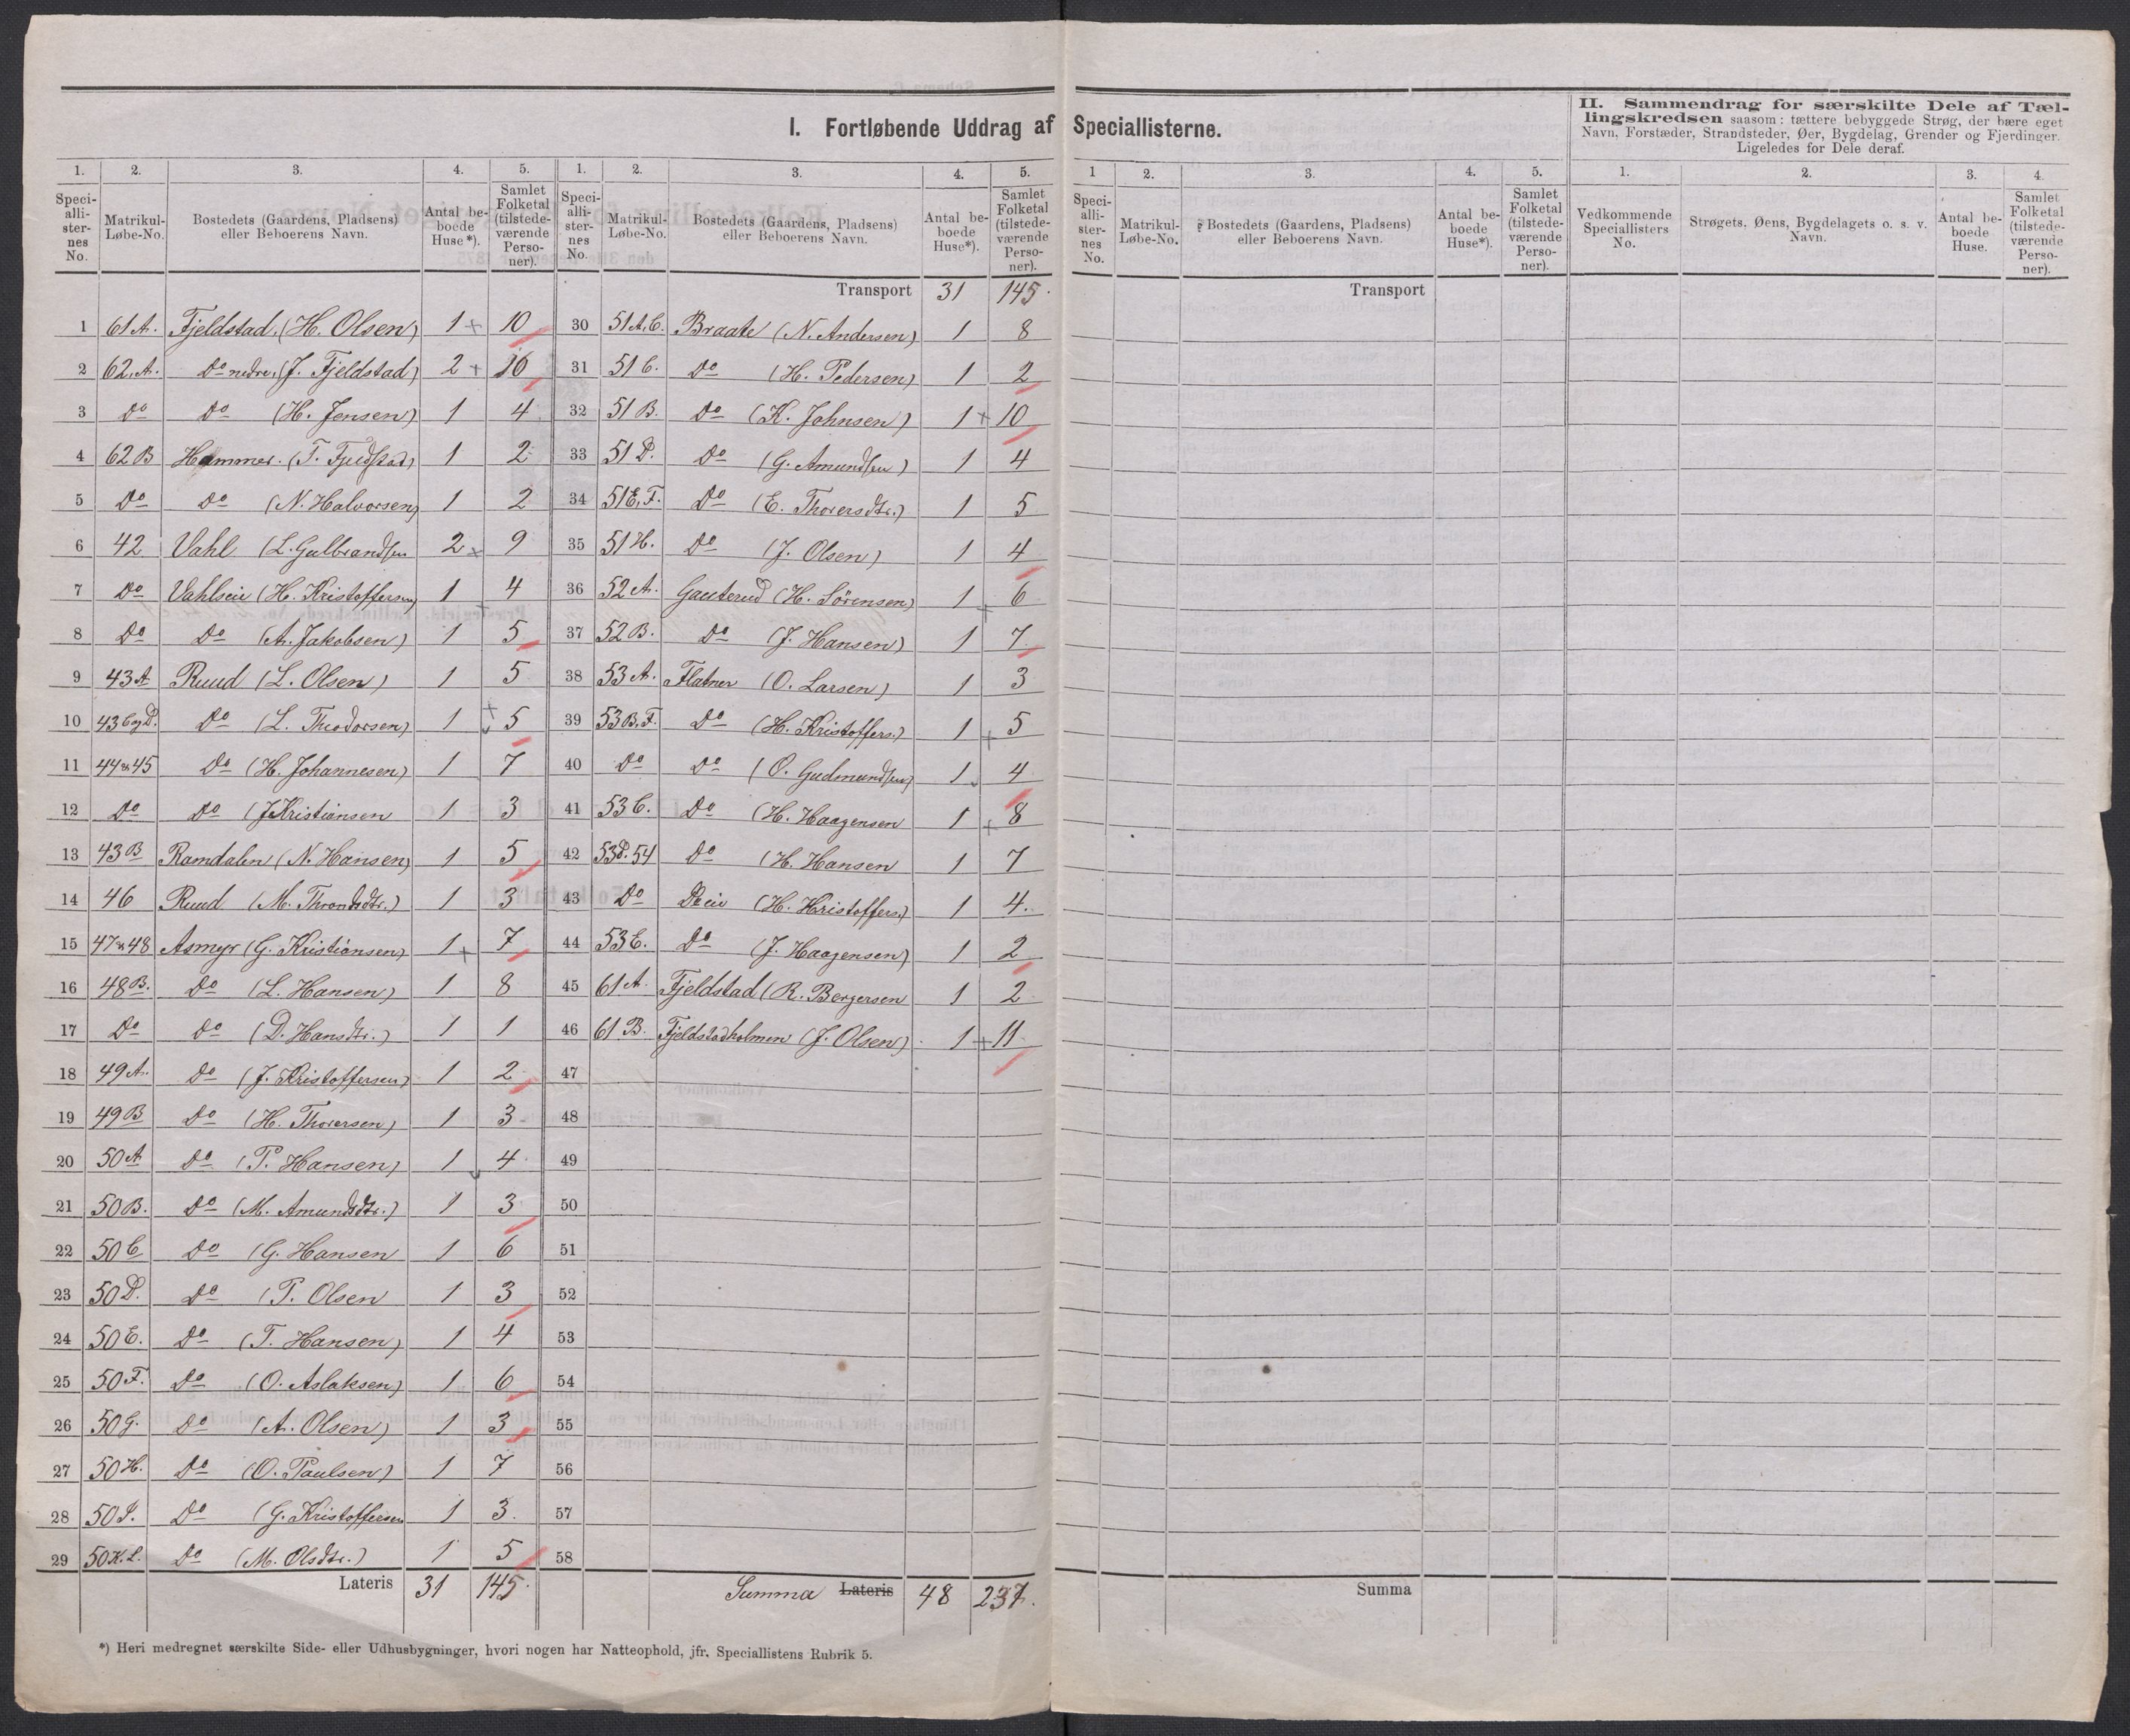 I. Fortløbende Uddrag af Speciallisterne.
II. Sammendrag for særskilte Dele af Tæl-
lingskredsen saasom: tættere bebyggede Strøg, der bære eget
Navn, Forstæder, Strandsteder, Øer, Bygdelag, Grender og Fjerdinger.
Ligeledes for Dele deraf.
1. 2. 3. 4. 5.
Speci-alli-ster-nes No. Matrikul-Løbe-No. Bostedets (Gaardens, Pladsens) eller Beboerens Navn. Antal be-boede Huse*). Samlet Folketal (tilstede-værende Perso-ner).
1 61A. Fjeldstad. (H. Olsen) 1 + 10
2 62.A. Do nedre. (J. Fjeldstad) 2 + 16
3 Do Do (H. Jensen) 1 4
4 62B Hammer. (T. Fjeldstad) 1 2
5 Do Do (N. Halvorsen) 1 2
6 42 Vahl (L. Gulbrandsen 2 + 9
7 Do Vahlseie (H. Kristoffersen) 1 4
8 Do Do (A. Jakobsen) 1 5
9 43A Ruud (L. Olsen) 1 5
10 43 C og D. Do (L. Theodorsen) 1 + 5
11 44 & 45 Do (H. Johannesen) 1 7
12 Do Do (J Kristiansen 1 3
13 43B Ramdalen (N. Hansen) 1 5
14 46 Ruud (M. Throndsdtr.) 1 3
15 47 & 48 Asmyr (G. Kristiansen) 1 + 7
16 48B. Do (L. Hansen) 1 8
17 Do Do (D. Hansdtr.) 1 1
18 49A. Do (J. Kristoffersen) 1 2
19 49B Do (H. Thorersen) 1 3
20 50A Do (P. Hansen) 1 4
21 50B. Do (M. Amundsdtr.) 1 3
22 50C Do (G. Hansen 1 6
23 50D. Do (P. Olsen 1 3
24 50E. Do (T. Hansen) 1 4
25 50F. Do (O. Aslaksen) 1 6
26 50G. Do (A. Olsen) 1 3
27 50H. Do (O. Paulsen) 1 7
28 50I. Do (G. Kristoffersen 1 3.
29 50K.L. Do (M. Olsdtr.) 1 5
Lateris 31 145.
1. 2. 3. 4. 5.
Speci-alli-ster-nes No. Matrikul-Løbe-No. Bostedets (Gaardens, Pladsens) eller Beboerens Navn. Antal be-boede Huse*). Samlet Folketal (tilstede-værende Perso-ner).
Transport 31 145.
30 51A,C. Braate (N. Andersen) 1 8
31 51C. Do (H. Pedersen) 1 2
32 51B. Do (K. Johnsen) 1 + 10
33 51D. Do (G. Amundsen) 1 4
34 51E,F. Do (E. Thorersdtr.) 1 5
35 51H. Do (J. Olsen) 1 4
36 52A. Gauterud (H. Sörensen) 1 + 6
37 52B. Do (J. Hansen) 1 7
38 53A. Flatner (O. Larsen) 1 3
39 53B.F. Do (H. Kristoffers.) 1 + 5
40 Do Do (O. Gudmundsen) 1 4
41 53C. Do (H. Haagensen 1 + 8
42 53D.54 Do (H. Hansen 1 7
43 Do Deie (H. Kristoffers.) 1 4.
44 53E. Do (J. Haagensen) 1 2
45 61A. Fjeldstad (R. Bergersen 1 2
46 61B. Fjeldstadholmen (J. Olsen) 1 + 11
47
48
49
50
51
52
53
54
55
56
57
58
Summa Lateris 48 237.
1 2. 3. 4. 5.
Speci-alli-ster-nes No. Matrikul-Løbe-No. Bostedets (Gaardens, Pladsens) eller Beboerens Navn. Antal be-boede Huse*). Samlet Folketal (tilstede-værende Perso-ner).
Transport
Summa
1. 2. 3. 4.
Vedkommende Speciallisters No. Strøgets, Øens, Bygdelagets o. s. v. Navn. Antal be-boede Huse. Samlet Folketal (tilstede-værende Perso-ner).
*) Heri medregnet særskilte Side- eller Udhusbygninger, hvori nogen har Natteophold, jfr. Speciallistens Rubrik 5.